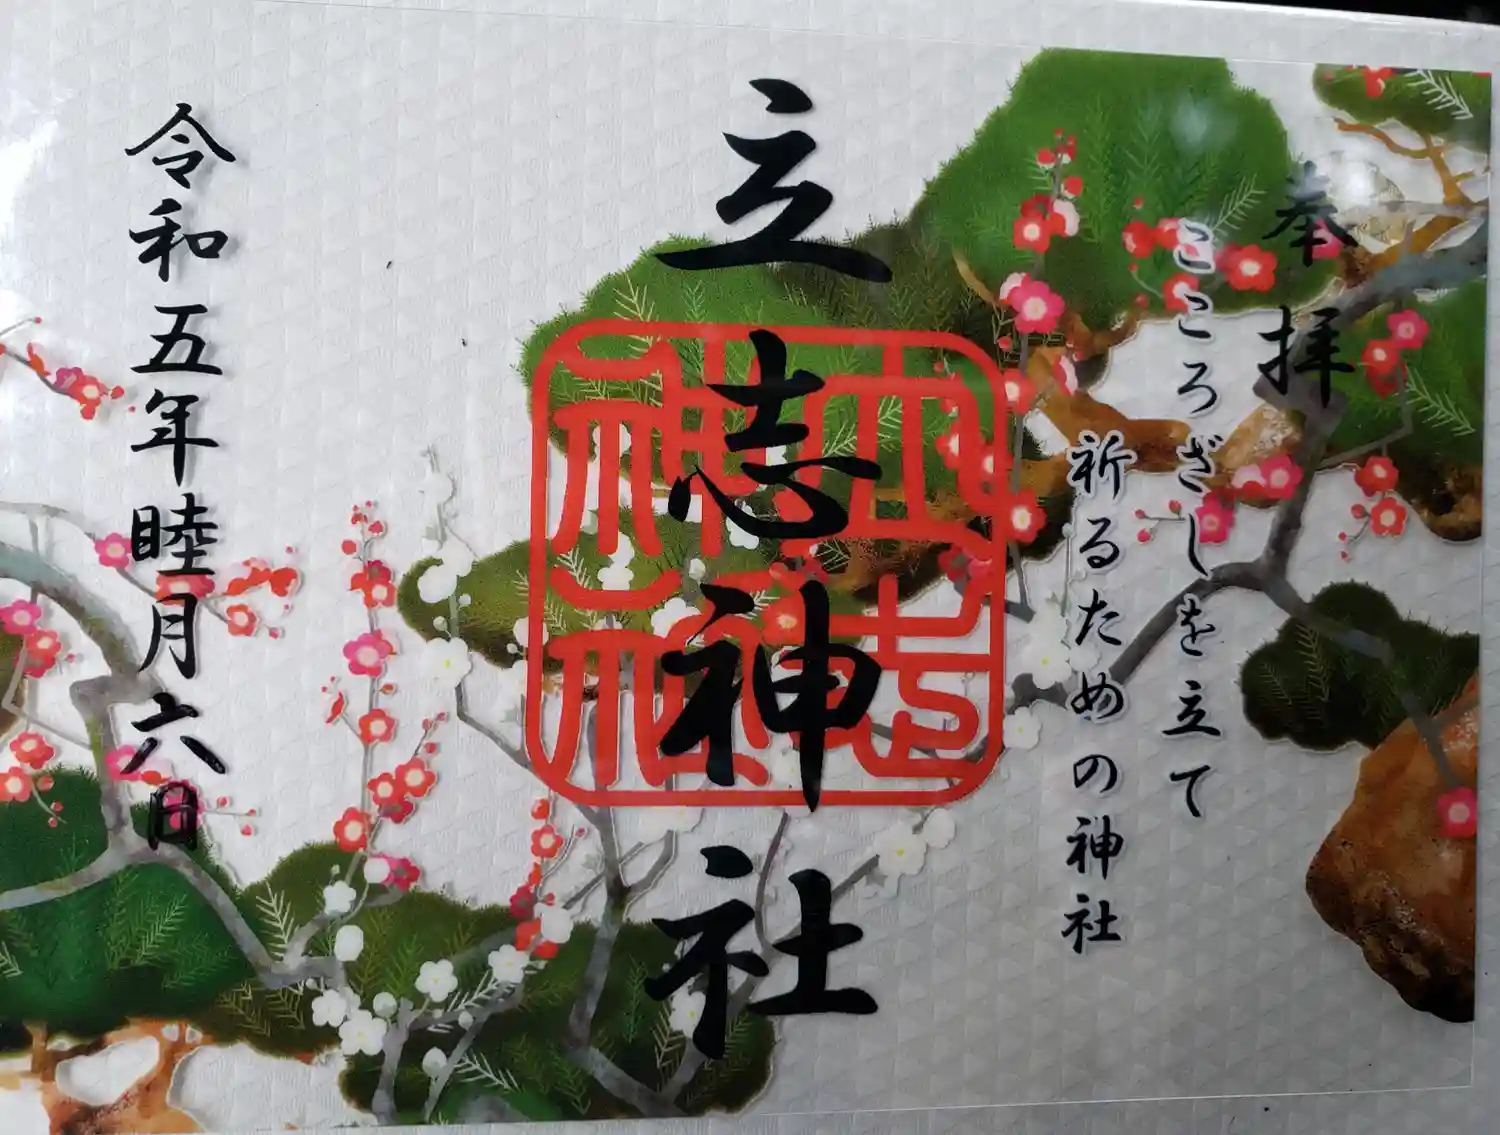 奉拝
こころざしを立て
祈るための神社
立志神社
立志神社
令和五年睦月六日